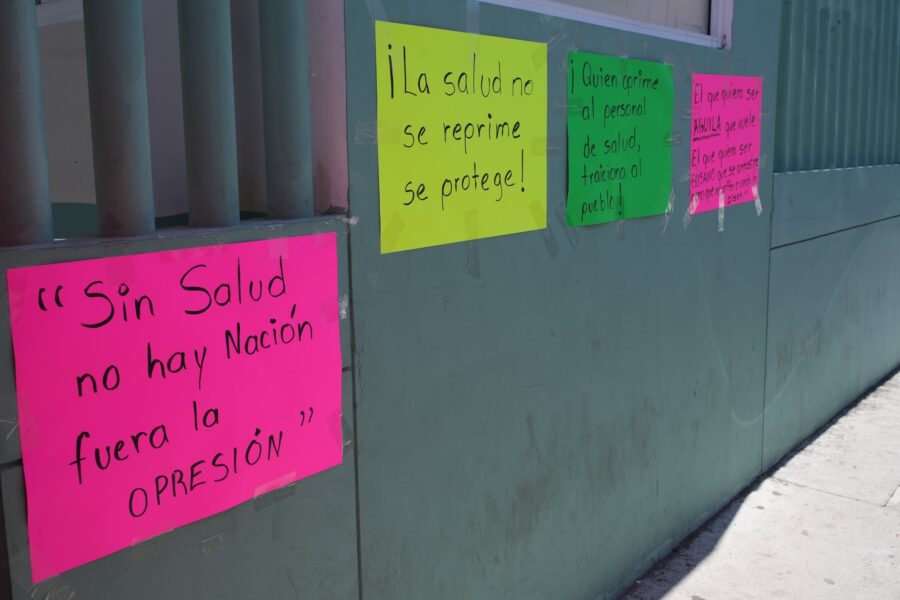 “Sin Salud
no hay Nación
fuera la
OPRESIÓN”
¡La salud no
se reprime
se protege!
¡Quien oprime
al personal
de salud,
traiciona al
pueblo!
El que quiera ser
AGUILA que vuele
El que quiera ser
GUSANO que se arrastre
pero que no grite cuando lo
pisen"